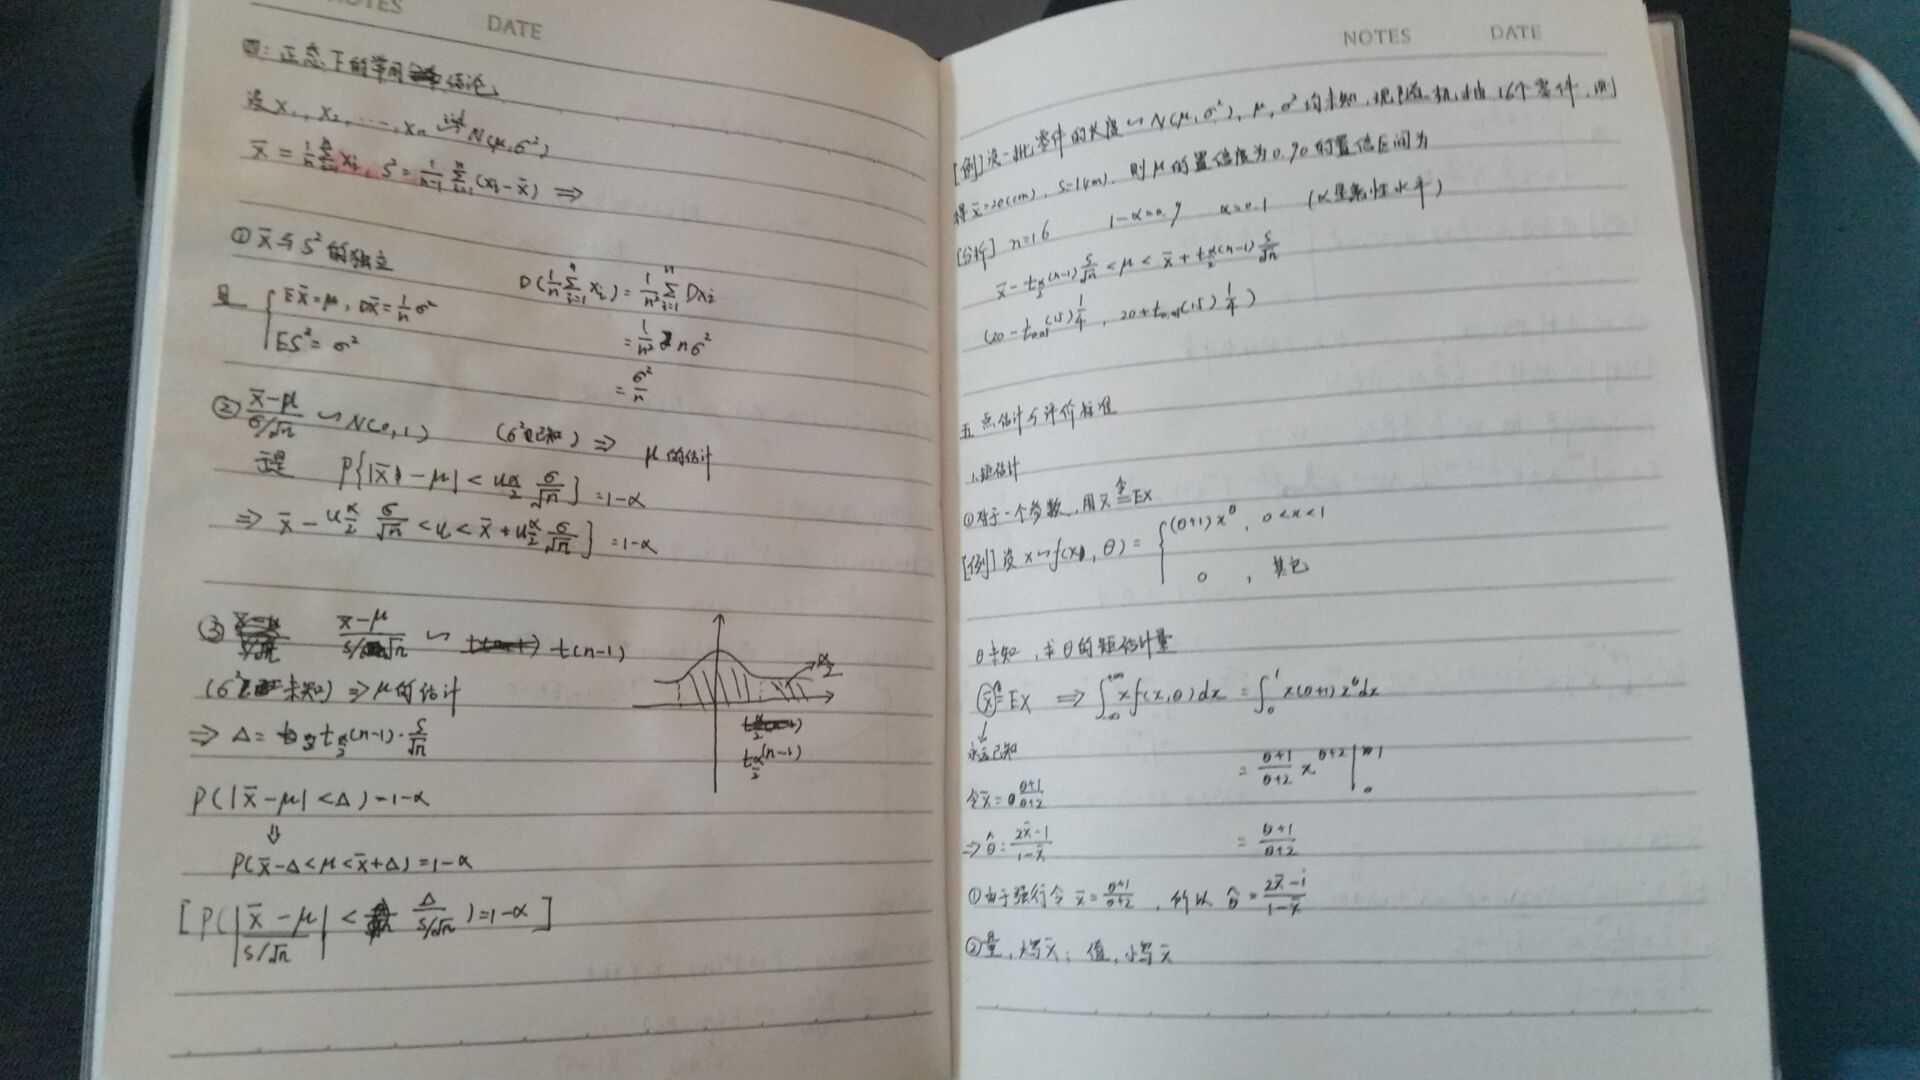 NOTES DATE
四:正态下的常用结论:
设 X₁, X₂, ⋯, Xn iid ~ N(μ, σ²)
X̄ = 1/n Σ Xi, S² = 1/(n-1) Σ (Xi - X̄) ⇒
① X̄与S²的独立
且 { EX̄ = μ, DX̄ = 1/n σ²
ES² = σ²
D(1/n Σ_{i=1}^n Xi) = 1/n² Σ_{i=1}^n DXi
= 1/n² n σ²
= σ²/n
② (X̄-μ)/(σ/√n) ~ N(0,1) (σ²已知) ⇒ μ的估计
于是 P{|X̄ - μ| < u_{α/2} σ/√n} = 1-α
⇒ X̄ - u_{α/2} σ/√n < u < X̄ + u_{α/2} σ/√n} = 1-α
③ (X̄-μ)/(S/√n) ~ t(n-1)
(σ²未知) ⇒ μ的估计
⇒ Δ = t_{α/2}(n-1)·S/√n
α/2
t_{α/2}(n-1)
P(|X̄-μ| < Δ) = 1-α
⇓
P(X̄-Δ < μ < X̄+Δ) = 1-α
[P(|(X̄-μ)/(S/√n)| < Δ/(S/√n)) = 1-α]
NOTES DATE
[例] 设一批零件的长度 ~ N(μ, σ²), μ, σ²均未知, 现随机抽16个零件, 测
得 x̄=20(cm), S=1(cm), 则μ的置信度为0.90的置信区间为
[分析] n=16 1-α=0.9 α=0.1 (α显著性水平)
X̄ - t_{α/2}(n-1) S/√n < μ < X̄ + t_{α/2}(n-1) S/√n
(20 - t_{0.05}(15) 1/4, 20 + t_{0.05}(15) 1/4)
五 点估计与评价标准
1.矩估计
①对于一个参数, 用X̄ ≙ EX
[例] 设 X~f(x, θ) = { (θ+1)x^θ, 0<x<1
0, 其它
θ未知, 求θ的矩估计量
X̄ ≙ EX ⇒ ∫_{-∞}^{+∞} x f(x,θ)dx = ∫_0^1 x(θ+1)x^θ dx
↓
永远已知
= (θ+1)/(θ+2) x^{θ+2} |_0^1
令X̄ = (θ+1)/(θ+2)
⇒ θ̂ = (2X̄-1)/(1-X̄)
= (θ+1)/(θ+2)
①由于强行令 X̄ = (θ+1)/(θ+2), 所以 θ̂ = (2X̄-1)/(1-X̄)
②量, 大写X̄; 值, 小写x̄